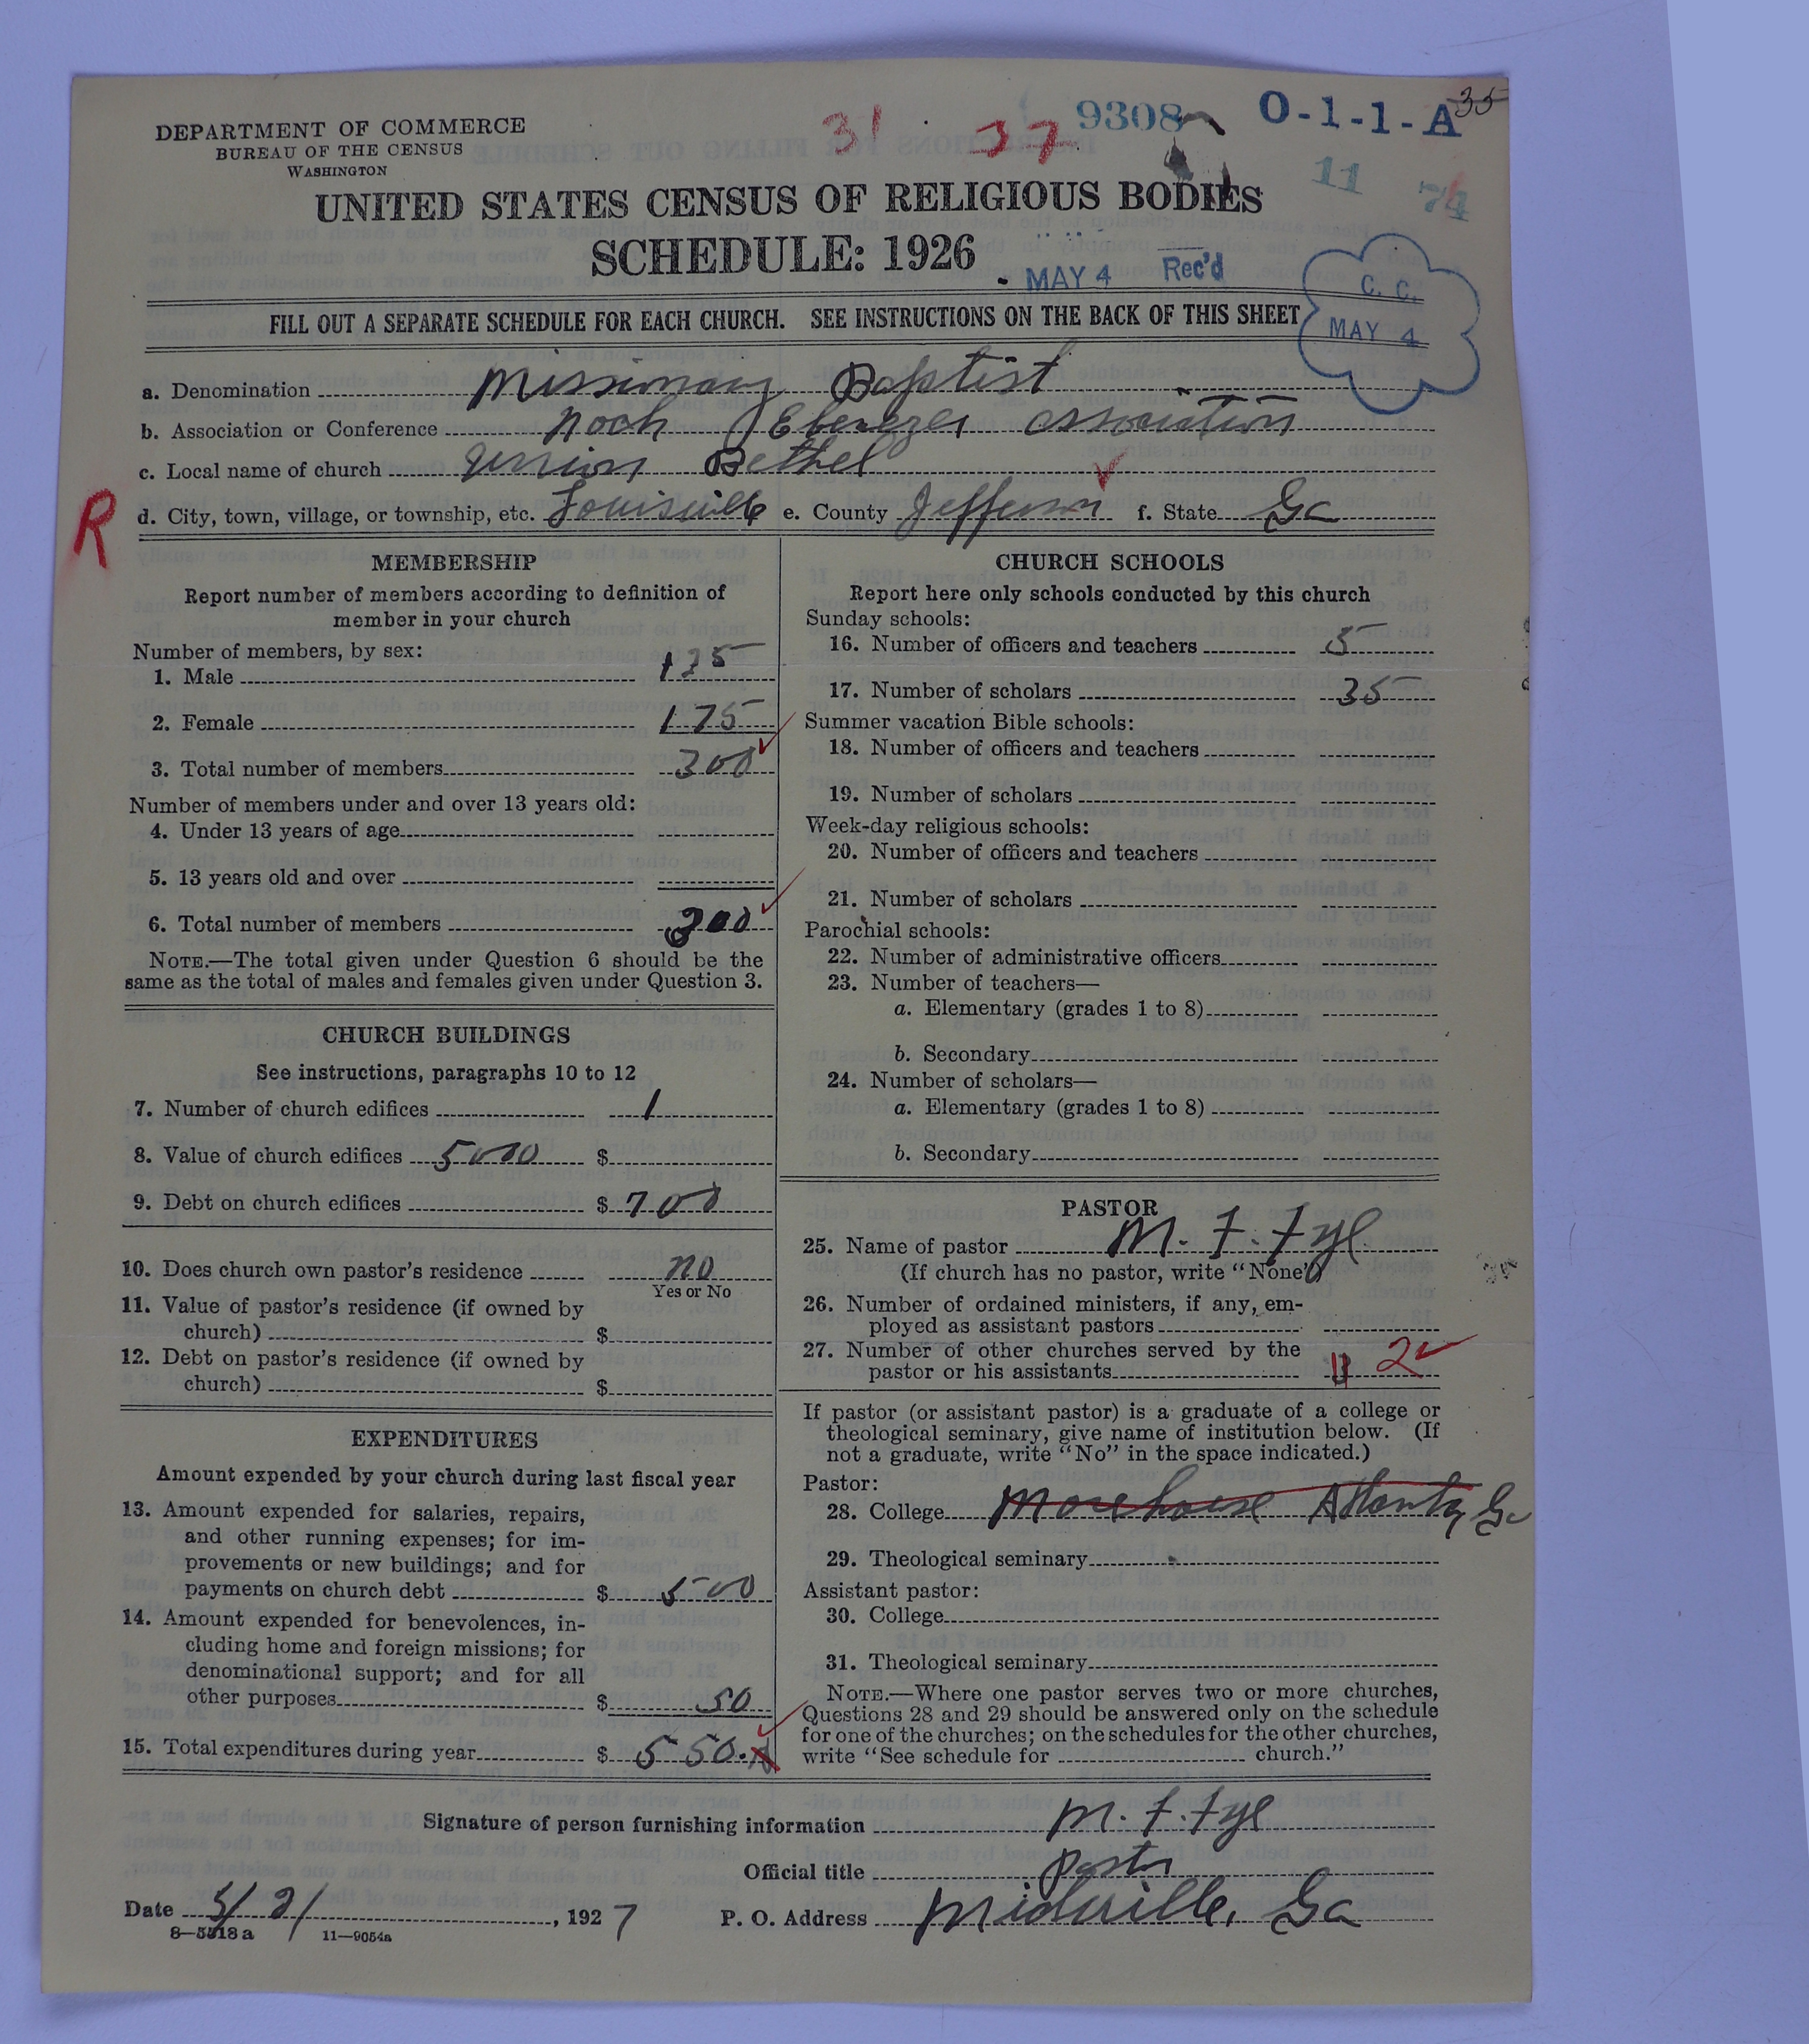 DEPARTMENT OF COMMERCE
BUREAU OF THE CENSUS
WASHINGTON
31 37 9308 O-1-1-A 35
11 74
UNITED STATES CENSUS OF RELIGIOUS BODIES
SCHEDULE: 1926
MAY 4 Rec'd
C. C.
MAY 4
FILL OUT A SEPARATE SCHEDULE FOR EACH CHURCH. SEE INSTRUCTIONS ON THE BACK OF THIS SHEET
a. Denomination Missionary Baptist
b. Association or Conference Noah Ebenezer Association
c. Local name of church Union Bethel
R
d. City, town, village, or township, etc. Louisville e. County Jefferson f. State Ga
MEMBERSHIP
Report number of members according to definition of
member in your church
Number of members, by sex:
1. Male 125
2. Female 175
3. Total number of members 300
Number of members under and over 13 years old:
4. Under 13 years of age
5. 13 years old and over
6. Total number of members 300
NOTE.—The total given under Question 6 should be the
same as the total of males and females given under Question 3.
CHURCH BUILDINGS
See instructions, paragraphs 10 to 12
7. Number of church edifices 1
8. Value of church edifices 5000 $
9. Debt on church edifices $ 700
10. Does church own pastor's residence no
Yes or No
11. Value of pastor's residence (if owned by
church) $
12. Debt on pastor's residence (if owned by
church) $
EXPENDITURES
Amount expended by your church during last fiscal year
13. Amount expended for salaries, repairs,
and other running expenses; for im-
provements or new buildings; and for
payments on church debt $ 500
14. Amount expended for benevolences, in-
cluding home and foreign missions; for
denominational support; and for all
other purposes $ 50
15. Total expenditures during year $ 550.
CHURCH SCHOOLS
Report here only schools conducted by this church
Sunday schools:
16. Number of officers and teachers 5
17. Number of scholars 35
Summer vacation Bible schools:
18. Number of officers and teachers
19. Number of scholars
Week-day religious schools:
20. Number of officers and teachers
21. Number of scholars
Parochial schools:
22. Number of administrative officers
23. Number of teachers—
a. Elementary (grades 1 to 8)
b. Secondary
24. Number of scholars—
a. Elementary (grades 1 to 8)
b. Secondary
PASTOR
25. Name of pastor M. F. Fyl
(If church has no pastor, write "None")
26. Number of ordained ministers, if any, em-
ployed as assistant pastors
27. Number of other churches served by the
pastor or his assistants 2
If pastor (or assistant pastor) is a graduate of a college or
theological seminary, give name of institution below. (If
not a graduate, write "No" in the space indicated.)
Pastor:
28. College Morehouse Atlanta, Ga
29. Theological seminary
Assistant pastor:
30. College
31. Theological seminary
NOTE.—Where one pastor serves two or more churches,
Questions 28 and 29 should be answered only on the schedule
for one of the churches; on the schedules for the other churches,
write "See schedule for church."
Signature of person furnishing information M. F. Fyl
Official title Pastor
Date 3/21, 1927 P. O. Address Midville, Ga
8—5518a 11—9054a